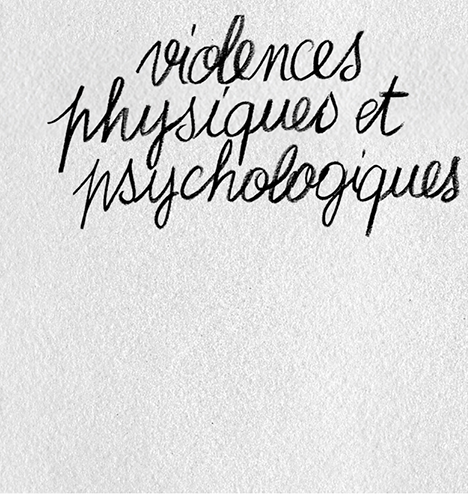 violences
physiques et
psychologiques